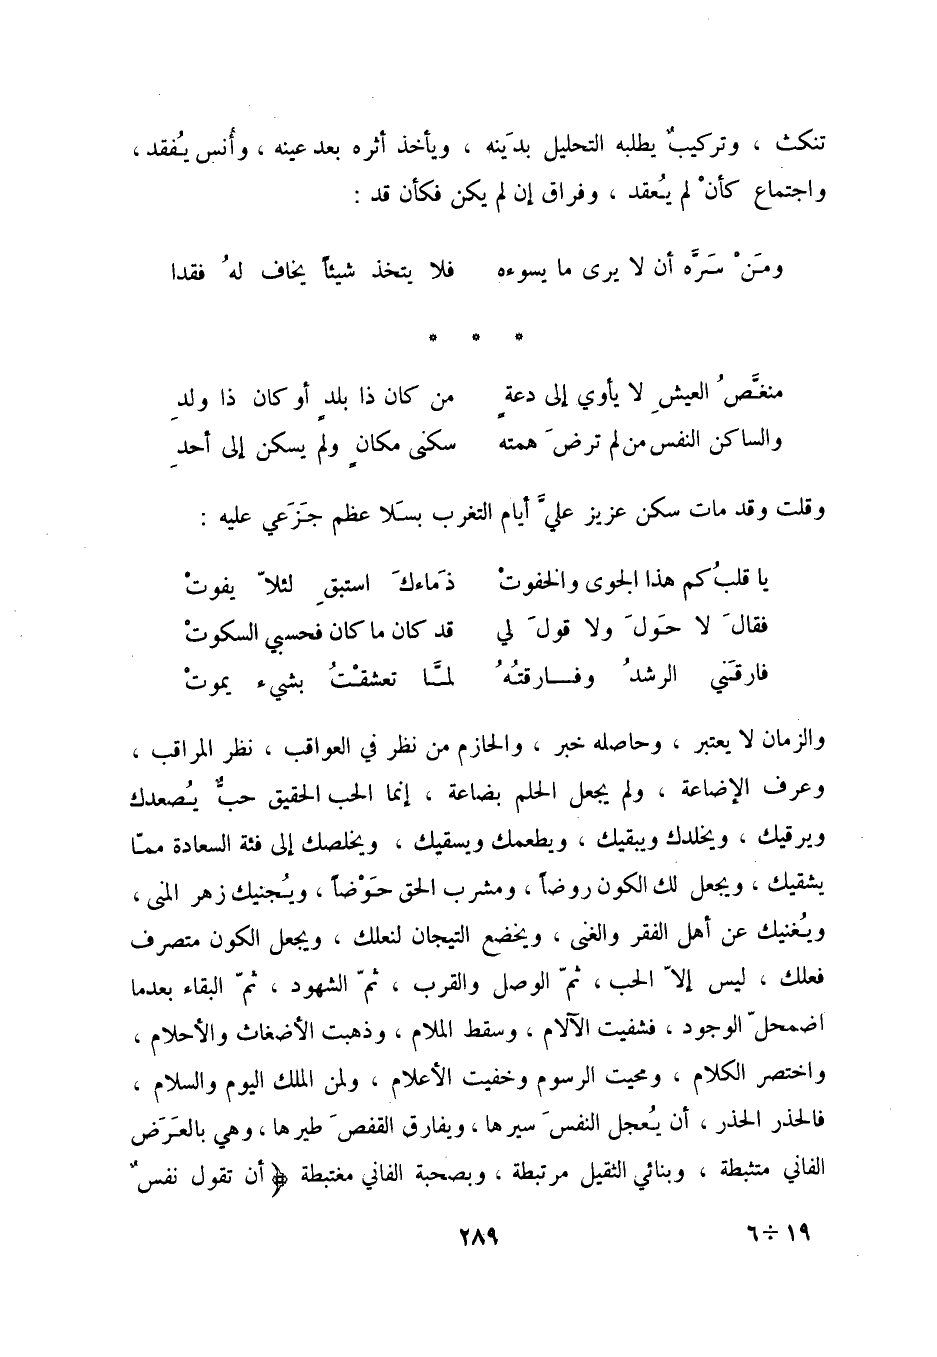 تنكث ، وتركيبٌ يطلبه التحليل بدَينه ، ويأخذ أثره بعد عينه ، وأُنس يُفقد ،
واجتماع كأنْ لم يُعقد ، وفراق إن لم يكن فكأن قد :
ومَنْ سَرَّه أن لا يرى ما يسوءه فلا يتخذ شيئاً يخاف لهُ فقدا
* * *
منغَّصُ العيشِ لا يأوي إلى دعةٍ من كان ذا بلدٍ أو كان ذا ولدِ
والساكن النفس من لم ترضَ همته سكنى مكانٍ ولم يسكن إلى أحدِ
وقلت وقد مات سكن عزيز عليَّ أيام التغرب بسَلا عظم جَزَعي عليه :
يا قلبُ كم هذا الجوى والخفوتْ ذَماءكَ استبقِ لئلاّ يفوتْ
فقالَ لا حَولَ ولا قولَ لي قد كان ما كان فحسبي السكوتْ
فارقَني الرشدُ وفــارقتُهُ لمَّا تعشقْتُ بشيء يموتْ
والزمان لا يعتبر ، وحاصله خبر ، والحازم من نظر في العواقب ، نظر المراقب ،
وعرف الإضاعة ، ولم يجعل الحلم بضاعة ، إنما الحب الحقيق حبٌّ يُصعدك
ويرقيك ، ويخلدك ويبقيك ، ويطعمك ويسقيك ، ويخلصك إلى فئة السعادة ممّا
يشقيك ، ويجعل لك الكون روضاً ، ومشرب الحق حَوْضاً ، ويُجنيك زهر المنى ،
ويُغنيك عن أهل الفقر والغنى ، ويخضع التيجان لنعلك ، ويجعل الكون متصرف
فعلك ، ليس إلاّ الحب ، ثمّ الوصل والقرب ، ثمّ الشهود ، ثمّ البقاء بعدما
اضمحلّ الوجود ، فشفيت الآلام ، وسقط الملام ، وذهبت الأضغاث والأحلام ،
واختصر الكلام ، ومحيت الرسوم وخفيت الأعلام ، ولمن الملك اليوم والسلام ،
فالحذر الحذر ، أن يُعجل النفسَ سيرها ، ويفارق القفصَ طيرها ، وهي بالعَرَض
الفاني متثبطة ، وبنائي الثقيل مرتبطة ، وبصحبة الفاني مغتبطة ﴿ أن تقول نفسٌ
١٩ ÷ ٦ ٢٨٩